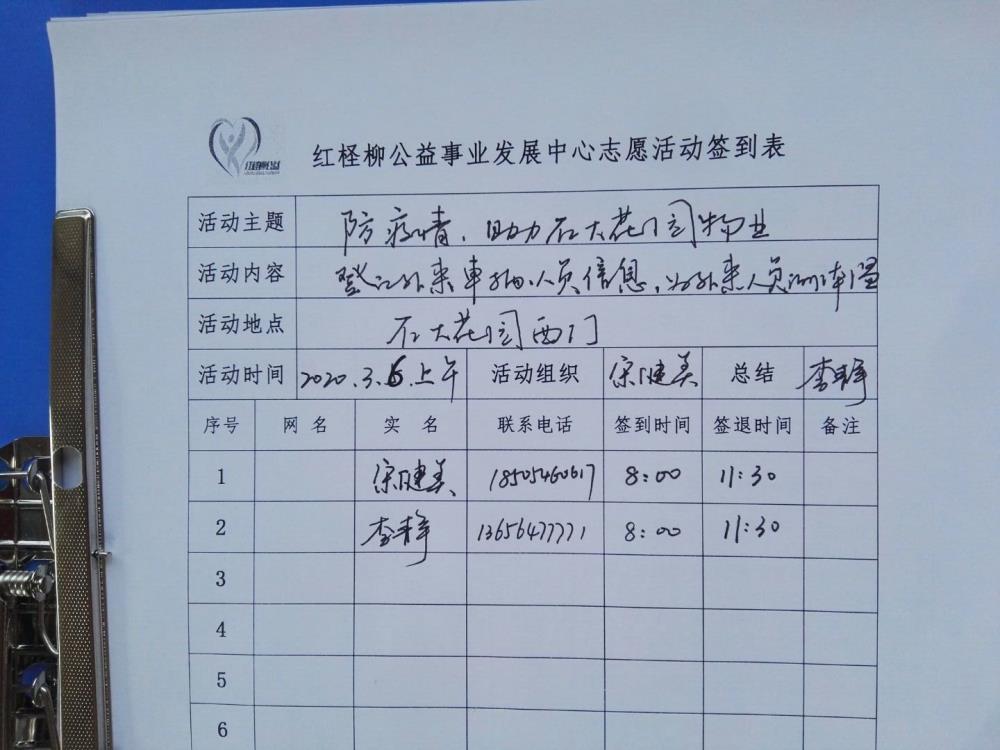 红柽柳公益事业发展中心志愿活动签到表
活动主题 防疫情，助力石大花园物业
活动内容 登记外来车辆、人员信息，为外来人员测体温
活动地点 石大花园西门
活动时间 2020.3.6上午 活动组织 宋健美 总结 李静
序号 网名 实名 联系电话 签到时间 签退时间 备注
1 宋健美 18505460617 8:00 11:30
2 李静 13656477771 8:00 11:30
3
4
5
6